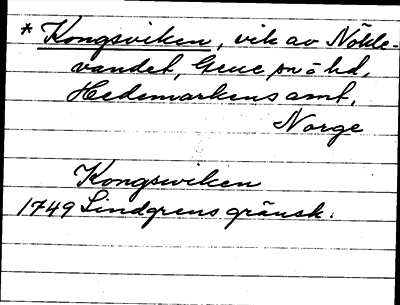 * Kongsviken, vik av Nökle-
vandet, Grue sn o hd,
Hedemarkens amt,
Norge
Kongswiken
1749 Lindgrens gränsk.